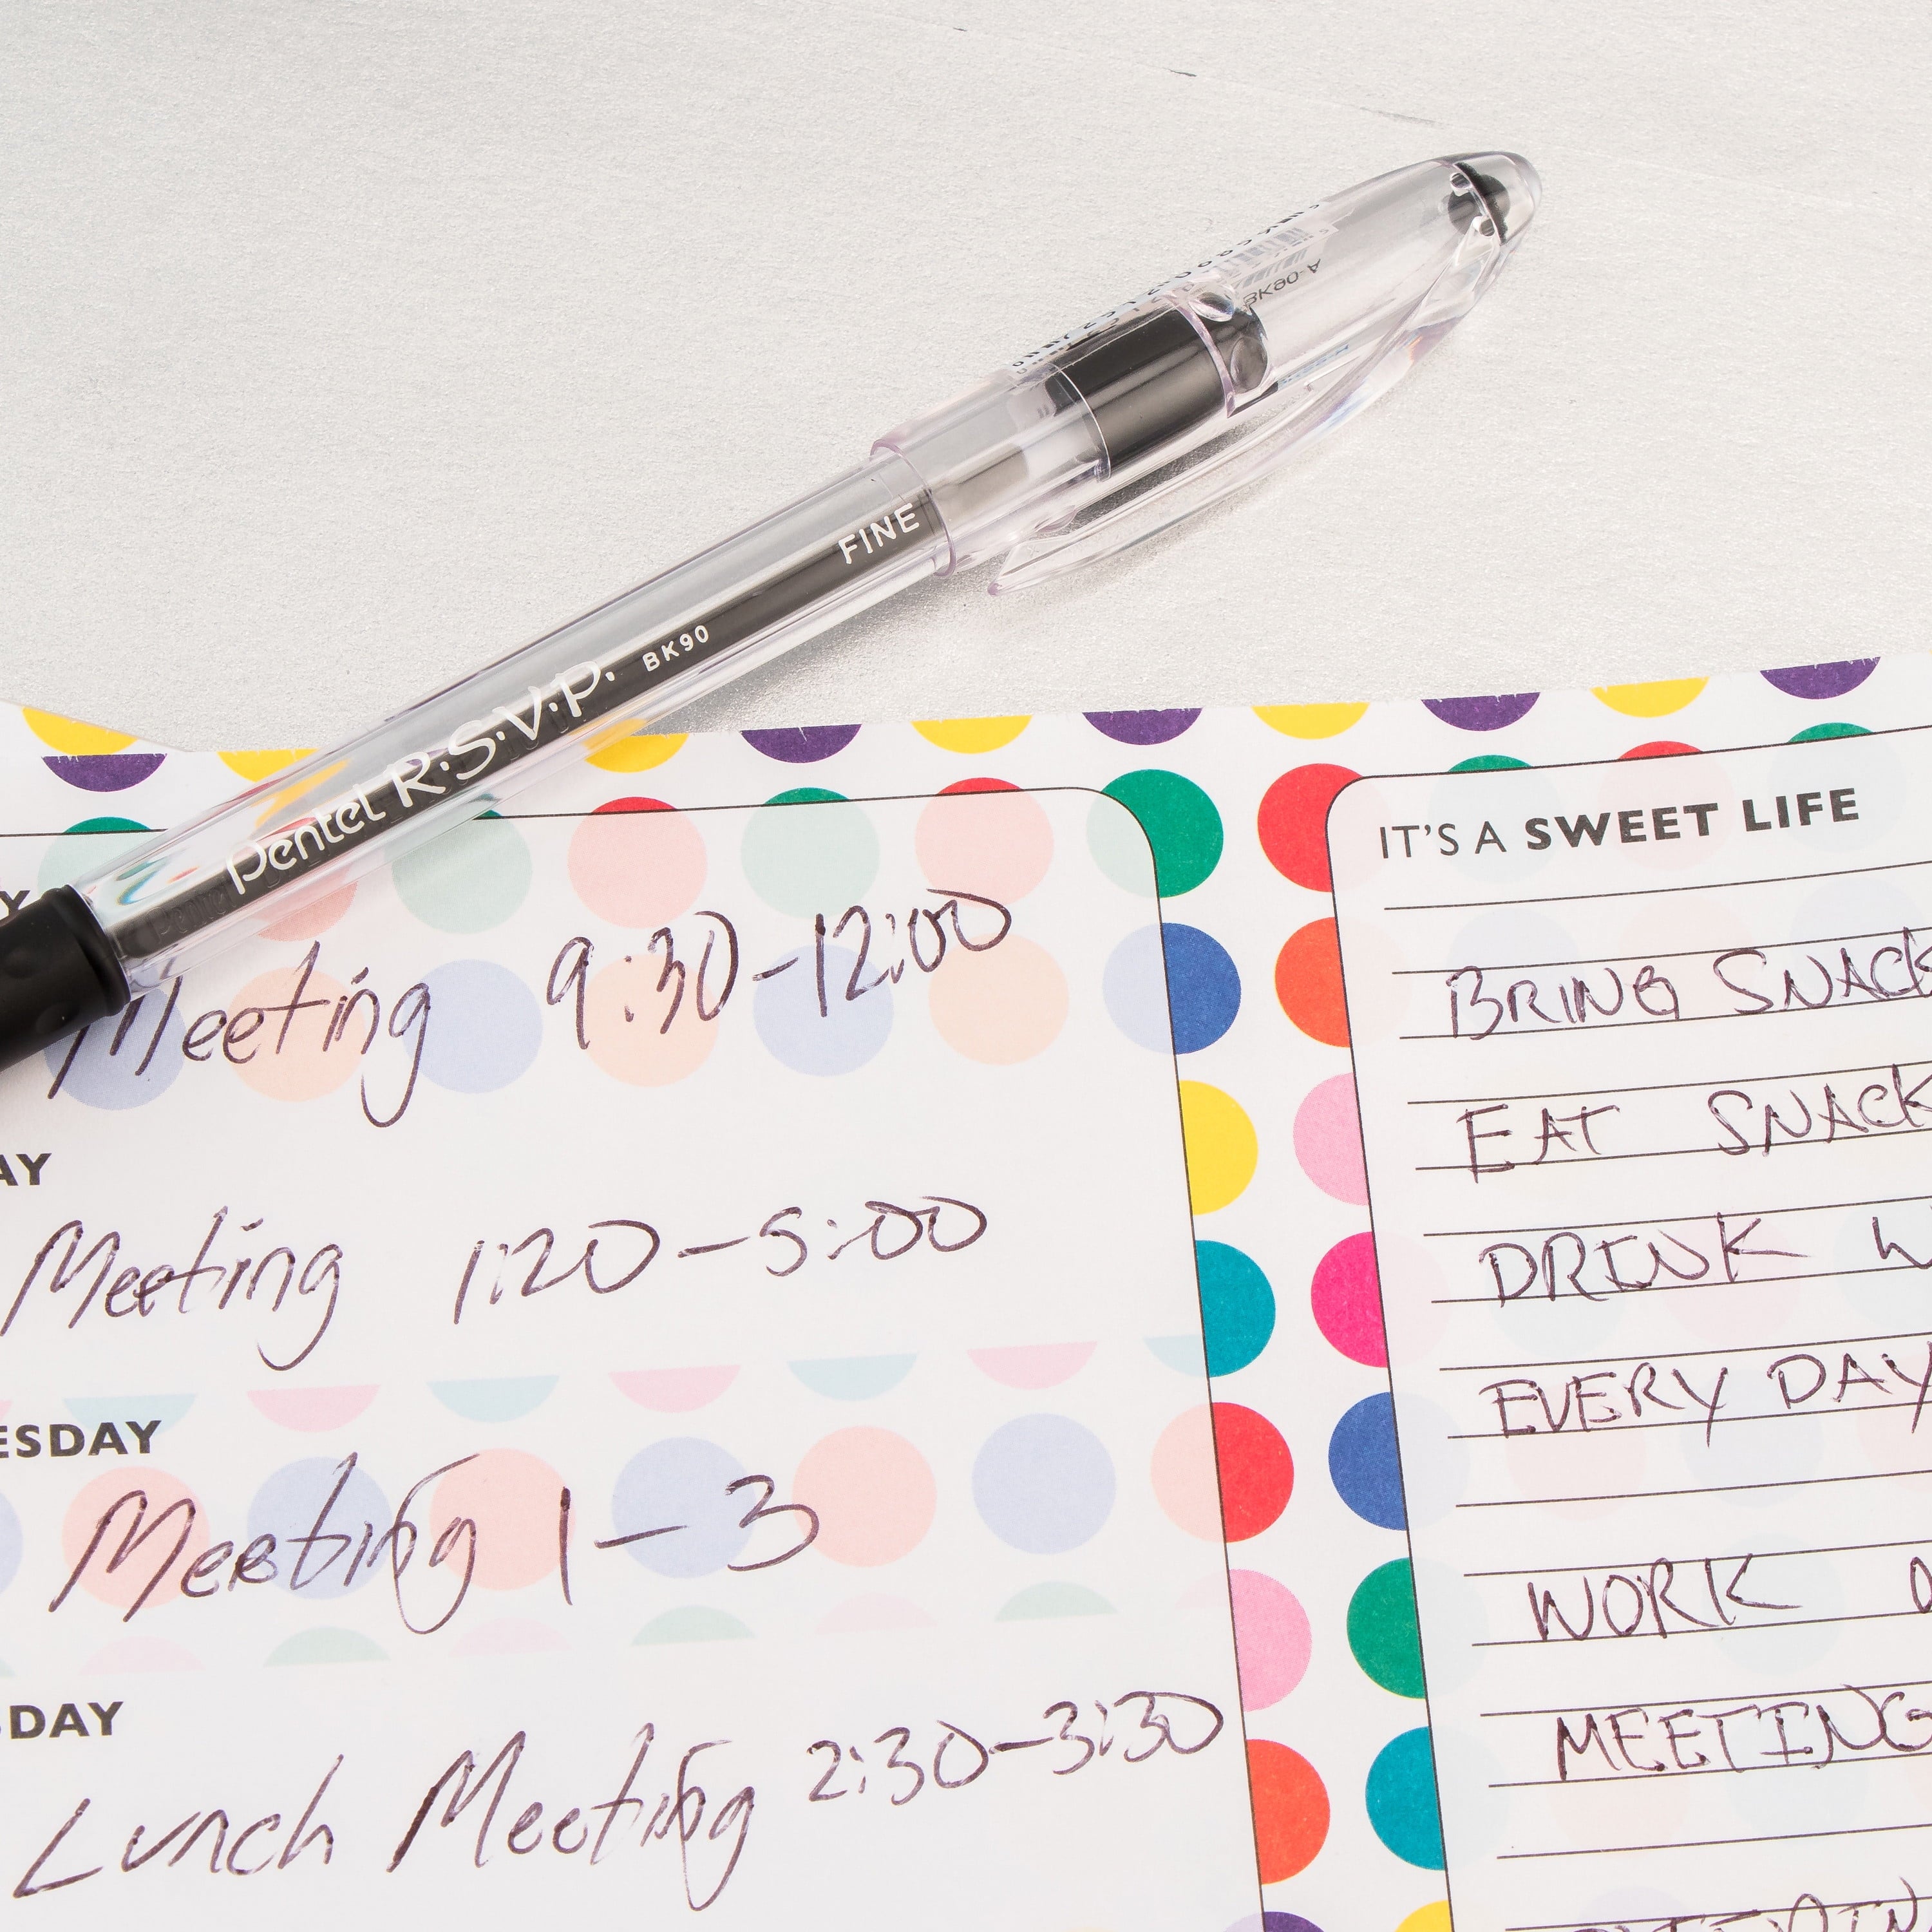 BK90-A
FINE
Pentel R.S.V.P. BK90
Y
Meeting 9:30-12:00
AY
Meeting 1:20-5:00
ESDAY
Meeting 1-3
SDAY
Lunch Meeting 2:30-3:30
IT'S A SWEET LIFE
BRING SNACK
EAT SNACK
DRINK W
EVERY DAY
WORK
MEETING